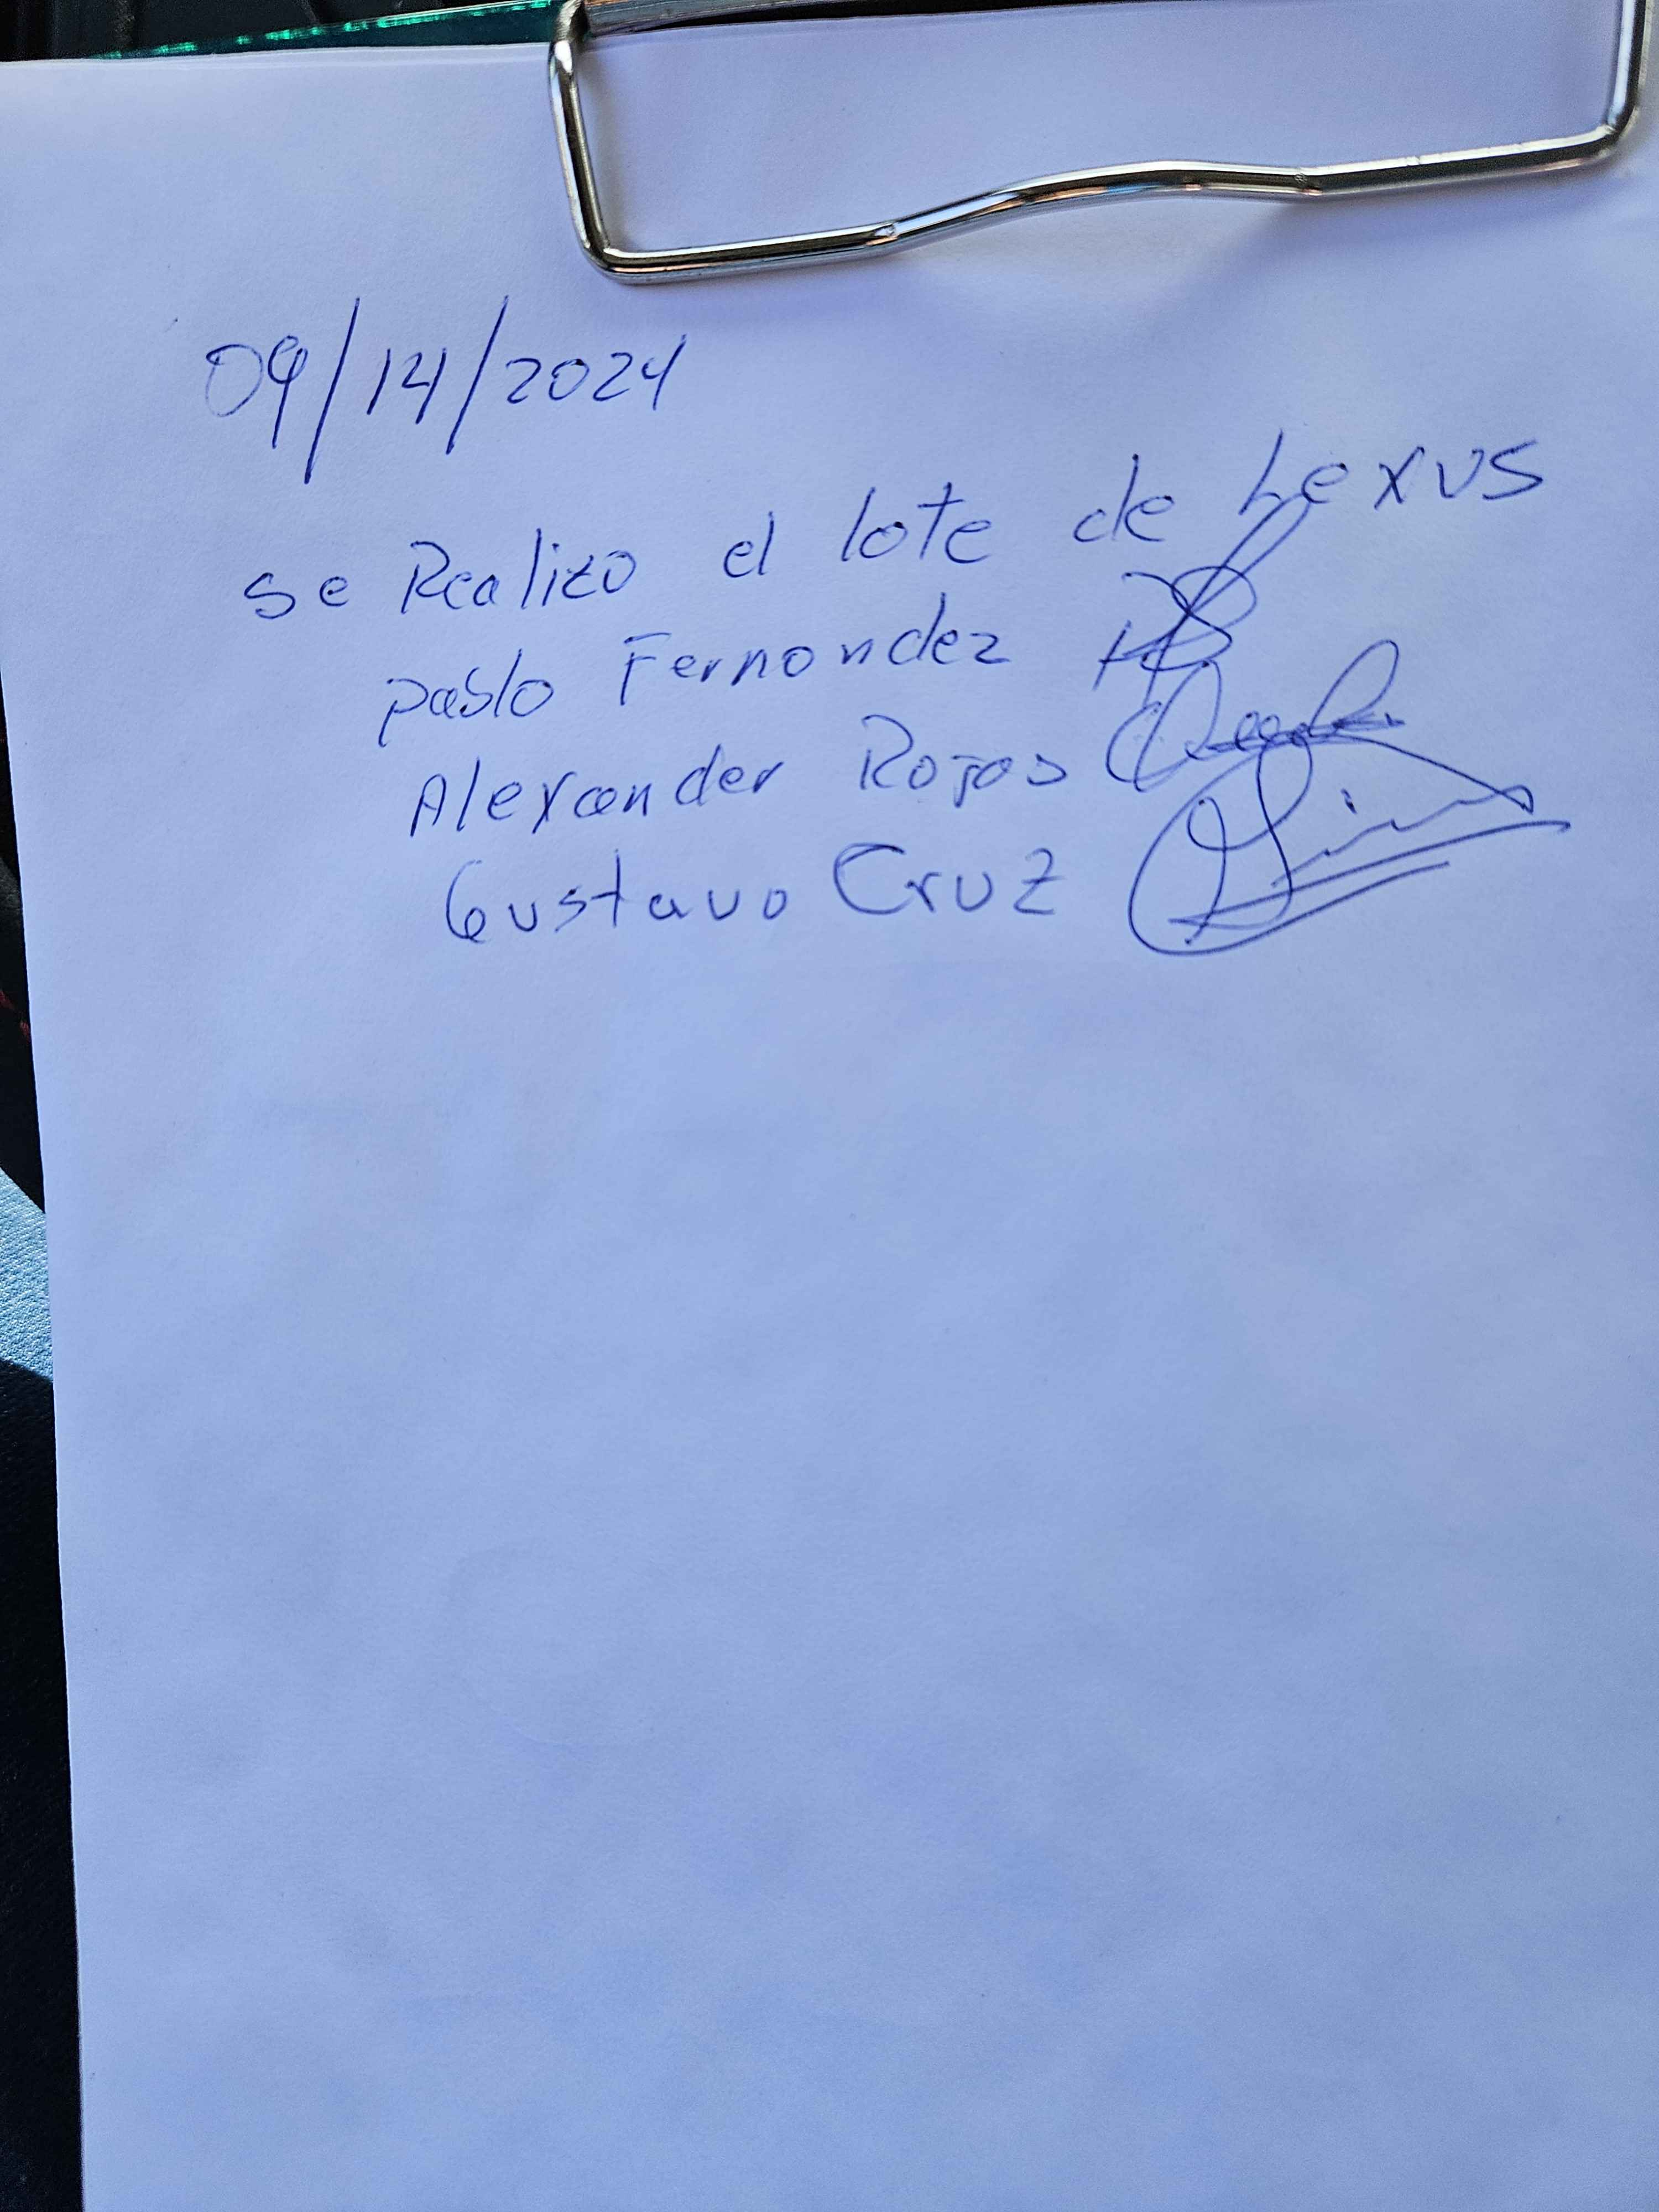 09/14/2024
se Realizo el lote de Lexus
pablo Fernandez
Alexander Rojas
Gustavo Cruz